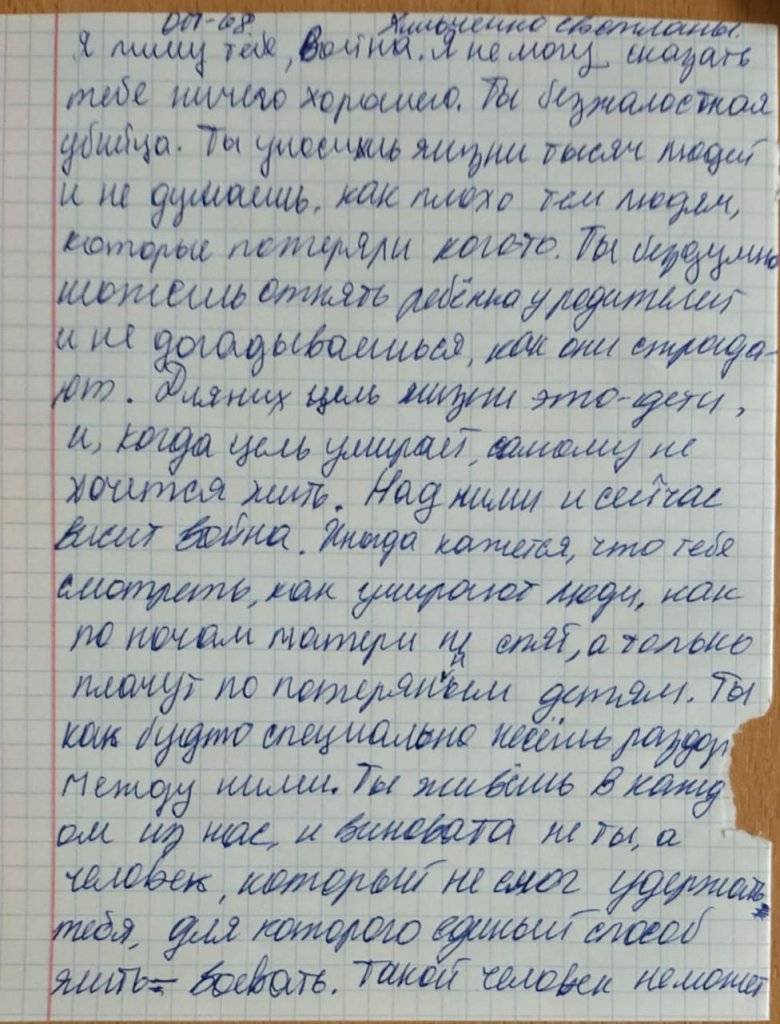 ОП-68 Хильченко Светланы.
Я пишу тебе, Война. Я не могу сказать
тебе ничего хорошего. Ты безжалостная
убийца. Ты уносишь жизни тысяч людей
и не думаешь, как плохо тем людям,
которые потеряли кого-то. Ты бездумно
можешь отнять ребёнка у родителей
и не догадываешься, как они страда-
ют. Для них цель жизни это-дети,
и, когда цель умирает, самому не
хочется жить. Над ними и сейчас
висит война. Иногда кажется, что тебе
смотреть, как умирают люди, как
по ночам матери не спят, а только
плачут по потерянным детям. Ты
как будто специально несёшь раздор
между ними. Ты живёшь в кажд
ом из нас, и виновата не ты, а
человек, который не смог удержать
тебя, для которого единый способ
жить = воевать. Такой человек не может